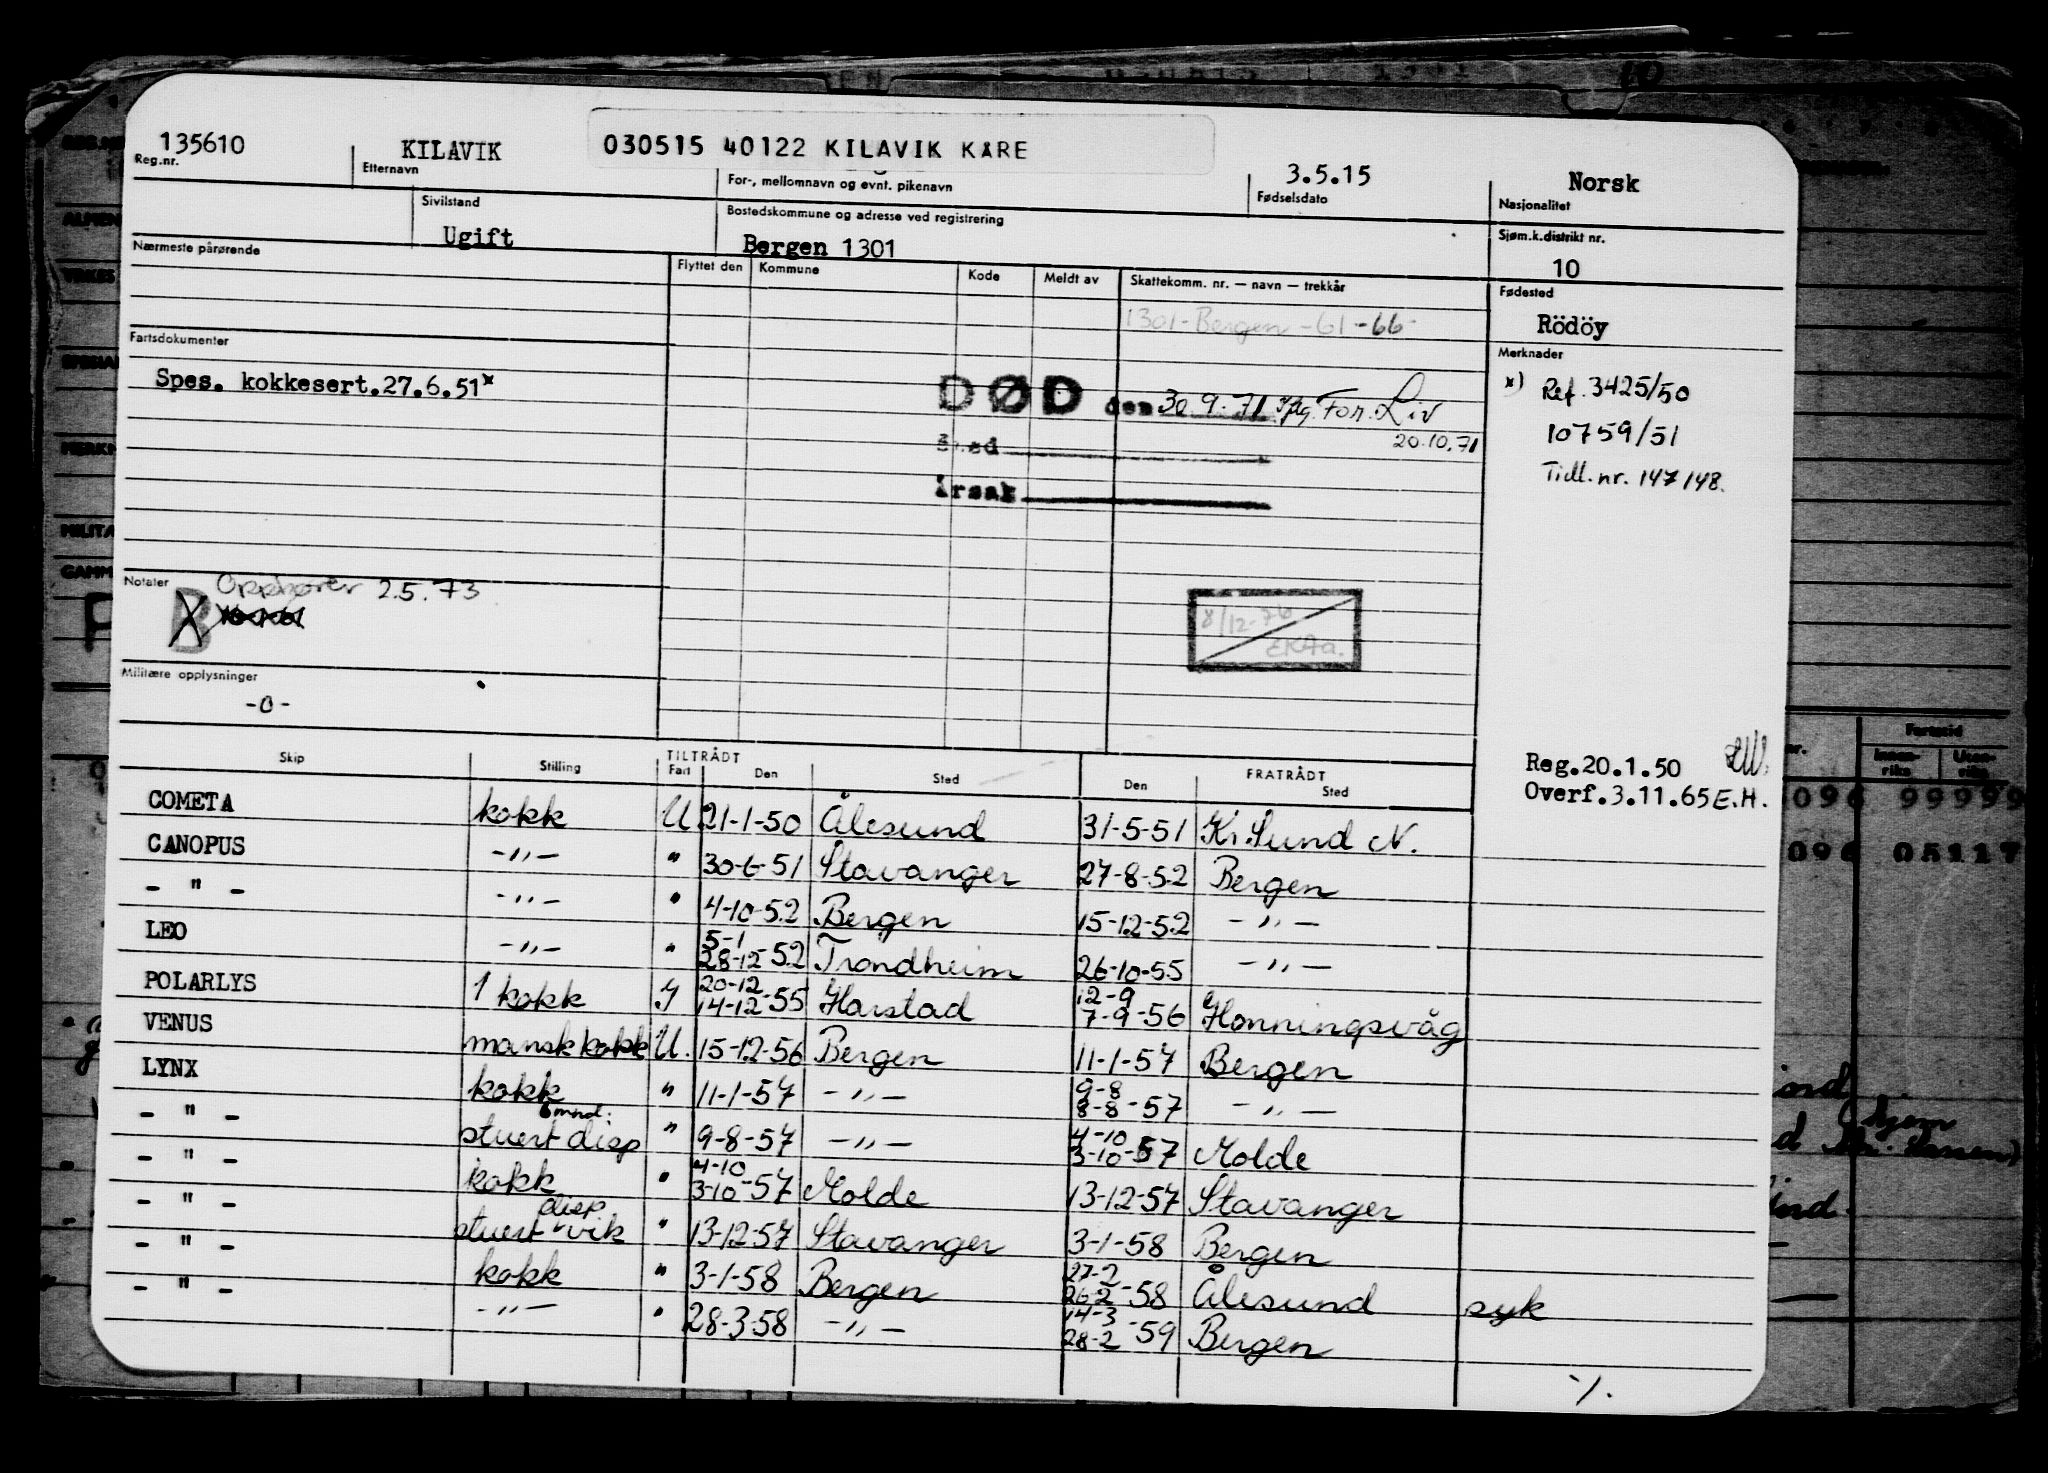 135610 KILAVIK 030515 40122 KILAVIK KÅRE 3.5.15 Norsk
Reg.nr. Etternavn For-, mellomnavn og evnt. pikenavn Fødselsdato Nasjonalitet
Sivilstand Bostedskommune og adresse ved registrering Sjøm.k.distrikt nr.
Ugift Bergen 1301 10
Nærmeste pårørende Flyttet den Kommune Kode Meldt av Skattekomm. nr. — navn — trekkår Fødested
1301-Bergen-61-66- Rödöy
Fartsdokumenter Merknader
Spes. kokkesert.27.6.51* DØD den 30.9.71 Iflg. For. Liv *) Ref. 3425/50
20.10.71 10759/51
Sted Tidl.nr. 147148.
Årsak
Notater Opphører 2.5.73
B
8/12-76
Militære opplysninger
-0-
Reg.20.1.50
Overf.3.11.65 E.H.
TILTRÅDT FRATRÅDT
Skip Stilling Fart Den Sted Den Sted
COMETA kokk U 21-1-50 Ålesund 31-5-51 Kr.Sund N.
CANOPUS -"- " 30-6-51 Stavanger 27-8-52 Bergen
- " - -"- " 4-10-52 Bergen 15-12-52 -"-
LEO -"- " 5-1 28-12-52 Trondheim 26-10-55 -"-
POLARLYS 1 kokk I 20-12 14-12-55 Harstad 12-9 7-9-56 Honningsvåg
VENUS mansk kokk U. 15-12-56 Bergen 11-1-57 Bergen
LYNX kokk " 11-1-57 -"- 9-8 8-8-57 -"-
- " - stuert 6 mnd. disp " 9-8-57 -"- 4-10 3-10-57 Molde
- " - kokk " 4-10 3-10-57 Molde 13-12-57 Stavanger
- " - stuert disp vik " 13-12-57 Stavanger 3-1-58 Bergen
- " - kokk " 3-1-58 Bergen 27-2 26-2-58 Ålesund syk
- " - -"- " 28-3-58 -"- 14-3 28-2-59 Bergen
·/.